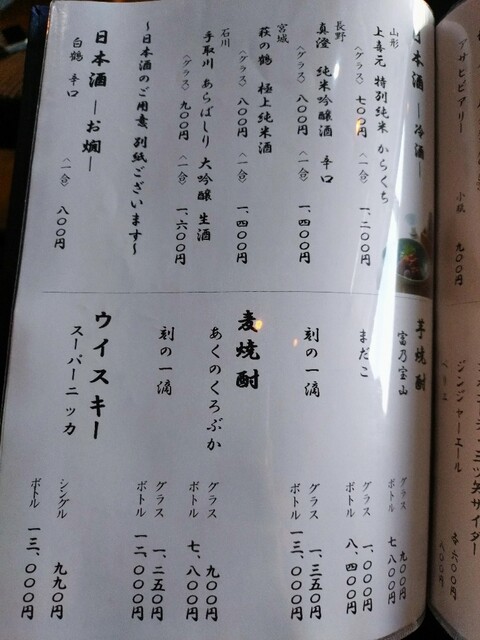 アサヒビアリー
小瓶 九〇〇円
ジンジャーエール
日本酒 ―冷酒―
山形
上喜元 特別純米 からくち
〈グラス〉 七〇〇円 〈一合〉 一、二〇〇円
長野
真澄 純米吟醸酒 辛口
〈グラス〉 八〇〇円 〈一合〉 一、四〇〇円
宮城
萩の鶴 極上純米酒
〈グラス〉 八〇〇円 〈一合〉 一、四〇〇円
石川
手取川 あらばしり 大吟醸 生酒
〈グラス〉 九〇〇円 〈一合〉 一、六〇〇円
～日本酒のご用意 別紙ございます～
日本酒 ―お燗―
白鶴 辛口 〈一合〉 八〇〇円
芋焼酎
富乃宝山
グラス 九〇〇円
ボトル 七、八〇〇円
まだこ
グラス 一、〇〇〇円
ボトル 八、四〇〇円
刻の一滴
グラス 一、三五〇円
ボトル 一三、〇〇〇円
麦焼酎
あくのくろぶか
グラス 九〇〇円
ボトル 七、八〇〇円
刻の一滴
グラス 一、二五〇円
ボトル 一二、〇〇〇円
ウイスキー
スーパーニッカ
シングル 九九〇円
ボトル 一三、〇〇〇円